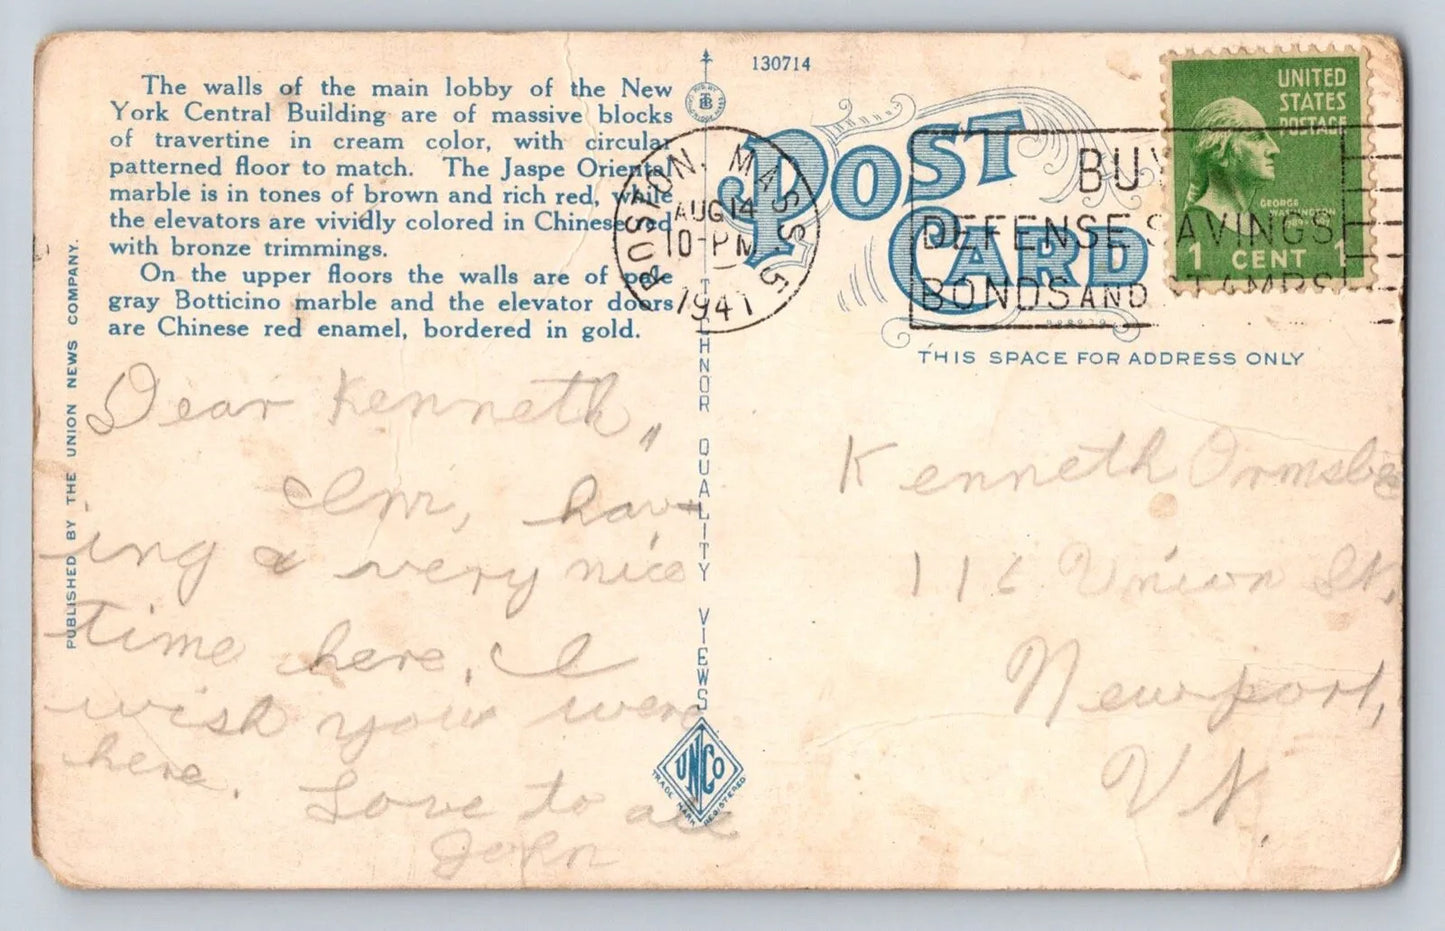 The walls of the main lobby of the New
York Central Building are of massive blocks
of travertine in cream color, with circular
patterned floor to match. The Jaspe Oriental
marble is in tones of brown and rich red, while
the elevators are vividly colored in Chinese red
with bronze trimmings.
On the upper floors the walls are of pale
gray Botticino marble and the elevator doors
are Chinese red enamel, bordered in gold.
PUBLISHED BY THE UNION NEWS COMPANY.
Dear Kenneth,,
I'm, hav-
ing a very nice
time here. I
wish you were
here. Love to all
John
130714
TICHNOR QUALITY VIEWS
UNCO
TRADE MARK REGISTERED
BOSTON, MASS. 5
AUG 14
10-PM
1941
POST
CARD
BUY
DEFENSE SAVINGS
BONDS AND STAMPS
UNITED
STATES
POSTAGE
GEORGE
WASHINGTON
1789-1797
1 CENT 1
THIS SPACE FOR ADDRESS ONLY
Kenneth Ormsbee
116 Union St,
Newport,
Vt.